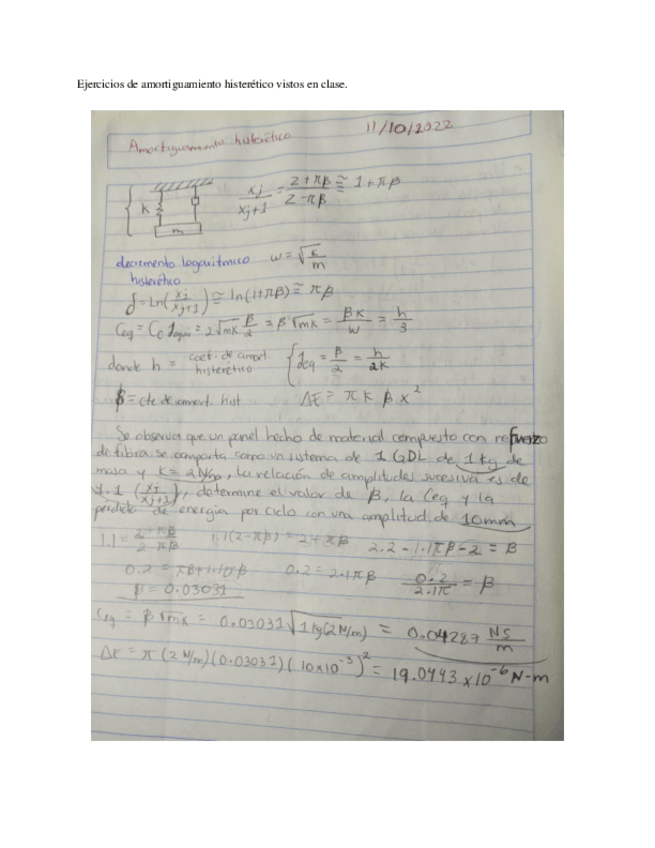 Ejercicios de amortiguamiento histerético vistos en clase.
11/10/2022
Amortiguamiento histerético
K
m
xj/xj+1 = 2+πβ/2-πβ ≅ 1+πβ
decremento logaritmico ω=√κ/m
histerético
δ=Ln(xj/xj+1) ≅ ln(1+πβ) ≅ πβ
Ceq = Cc = 2√mk β/2 = β√mk = βK/ω = h/3
donde h = coef. de amort. histerético { eq = β/2 = h/2K
β = cte de amort. hist ΔE = πKβx²
Se observa que un panel hecho de material compuesto con refuerzo
de fibra se comporta como un sistema de 1 GDL de 1 kg de
masa y K= 2N/m, La relación de amplitudes sucesivas es de
1.1 (xj/xj+1), determine el valor de β, la Ceq y la
perdida de energía por ciclo con una amplitud de 10mm
1.1 = 2+πβ/2-πβ 1.1(2-πβ) = 2+πβ 2.2-1.1πβ-2 = β
0.2 = πβ+1.1πβ 0.2 = 2.1πβ 0.2/2.1π = β
β = 0.03031
Ceq = β√mk = 0.03031√1kg(2N/m) = 0.04287 NS/m
ΔE = π(2N/m)(0.03031)(10x10⁻³)² = 19.0443 x10⁻⁶ N-m